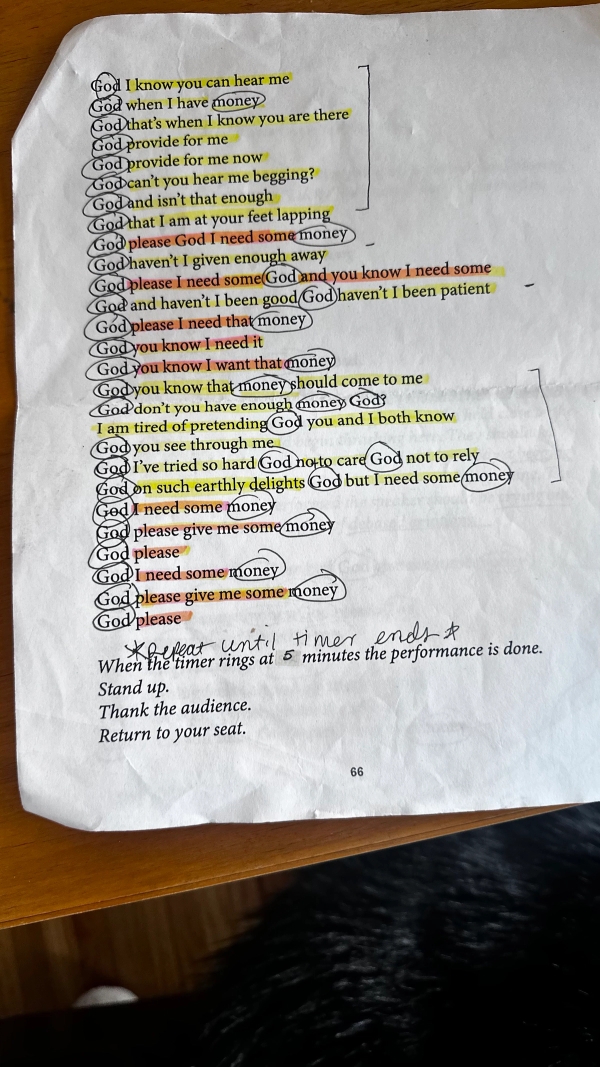 God I know you can hear me
God when I have money
God that's when I know you are there
God provide for me
God provide for me now
God can't you hear me begging?
God and isn't that enough
God that I am at your feet lapping
God please God I need some money
God haven't I given enough away
God please I need some God and you know I need some
God and haven't I been good God haven't I been patient
God please I need that money
God you know I need it
God you know I want that money
God you know that money should come to me
God don't you have enough money God?
I am tired of pretending God you and I both know
God you see through me
God I've tried so hard God not to care God not to rely
God on such earthly delights God but I need some money
God I need some money
God please give me some money
God please
God I need some money
God please give me some money
God please
*Repeat until timer ends*
When the timer rings at 5 minutes the performance is done.
Stand up.
Thank the audience.
Return to your seat.
66